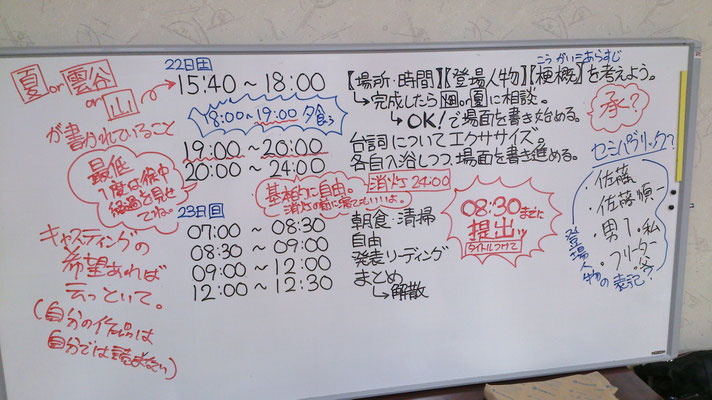 夏 or 雲谷
or 山
が書かれていること
最低
1度は途中
経過を見せ
てね。
キャスティングの
希望あれば
云っといて。
(自分の作品は
自分では読まない)
22日土
15:40～18:00
18:00～19:00 夕食
19:00～20:00
20:00～24:00
基本的に自由。
消灯の前に寝てもいいよ。
消灯 24:00
23日日
07:00～08:30
08:30～09:00
09:00～12:00
12:00～12:30
こうがい=あらすじ
【場所・時間】【登場人物】【梗概】を考えよう。
完成したら
に相談。
OK!で場面を書き始める。
台詞についてエクササイズ。
各自入浴しつつ、場面を書き進める。
朝食・清掃
自由
発表リーディング
まとめ
解散
08:30までに
提出ッ
タイトルつけて
承?
セミパブリック?
・佐藤
・佐藤慎一
・男1・私
・フリーター
登場人物の表記